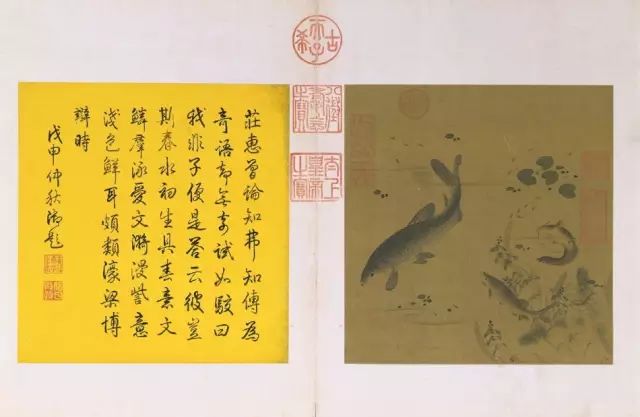 古希天子
莊惠曾論知弗知傳為
奇語却無奇試如駁曰
我非子便是答云彼豈
斯春水初生具喜意文
鱗群泳愛文漪漫訾意
淺色鮮耳頗類濠梁博
辯時
戊申仲秋御題
八徵耄念之寶
太上皇帝之寶